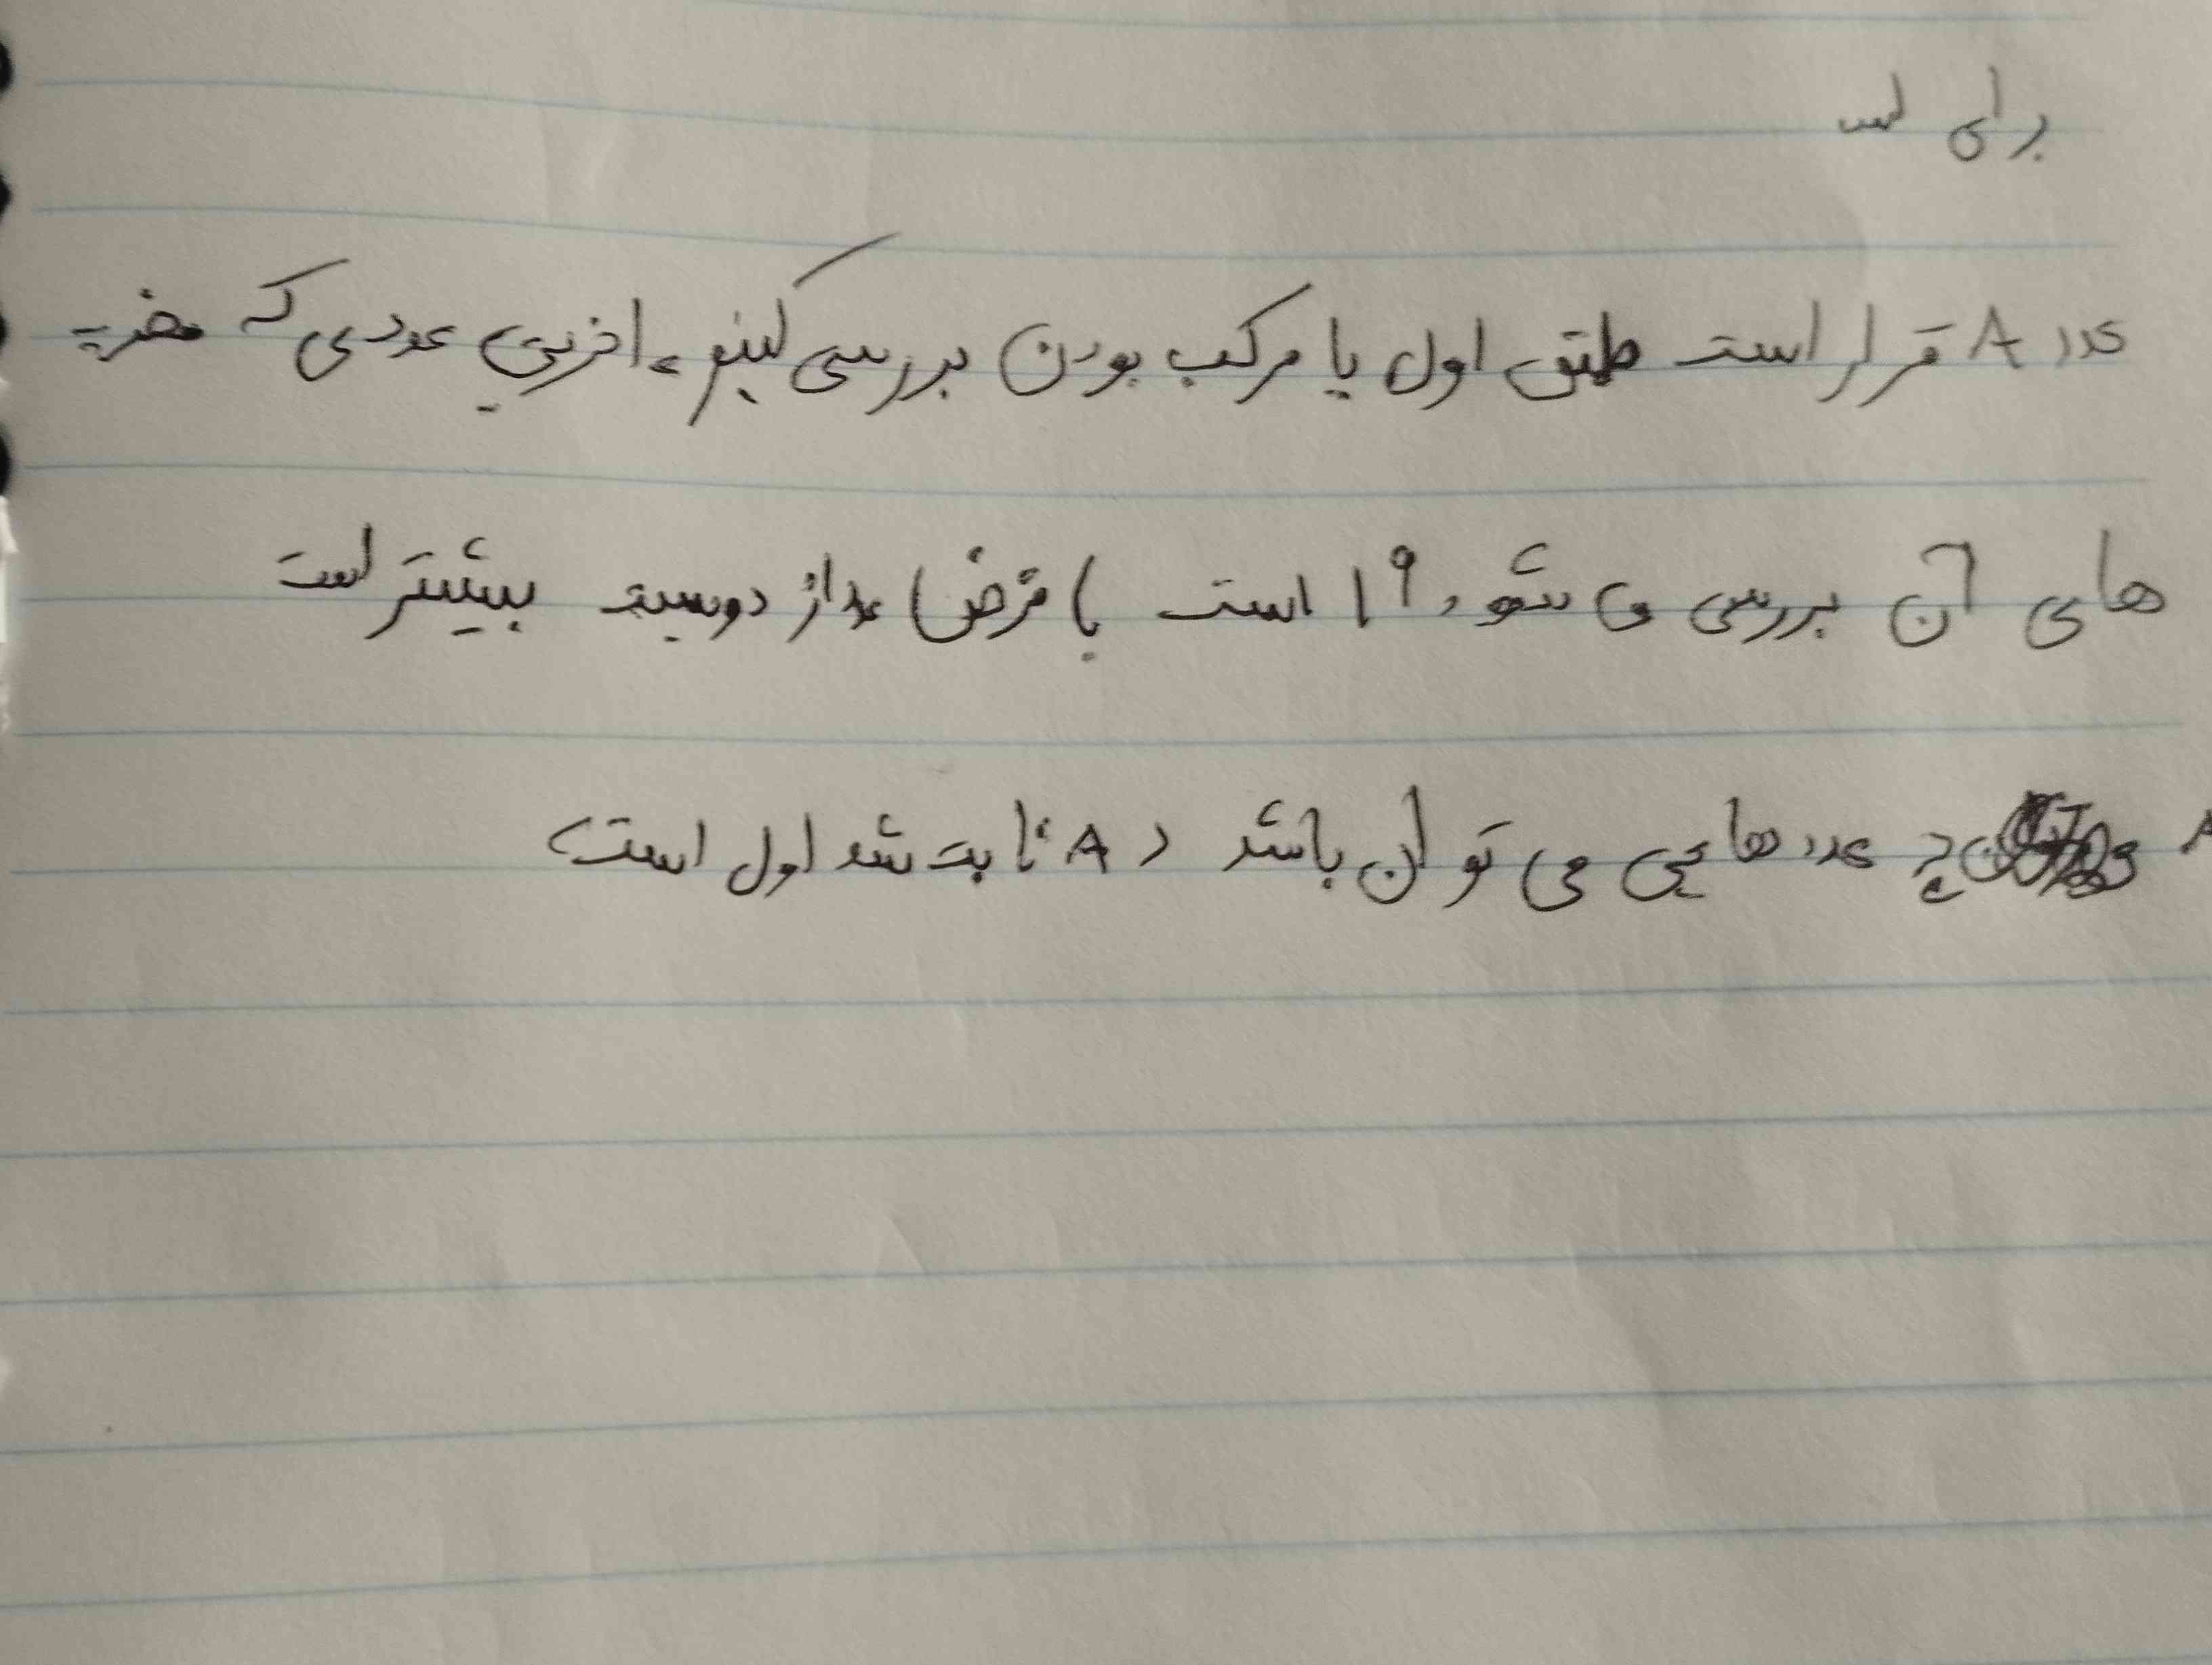 برای
عدد A قرار است طبق اول یا مرکب بودن بررسی کنیم، اخرین عددی که مضرب
های آن بررسی می شود ۱۹ است با فرض عدد از دویست بیشتر است
A چه عددهایی می توان باشد ( A ثابت شد اول است )